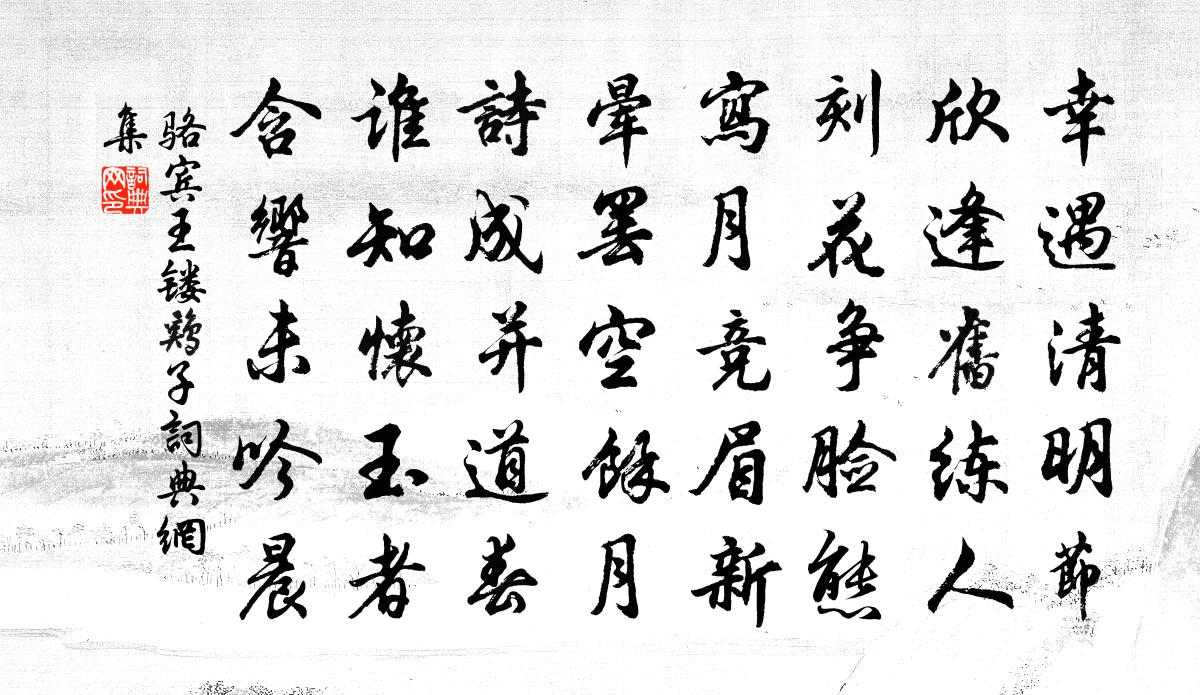 幸遇清明節
欣逢舊练人
刻花争脸態
寫月竞眉新
暈罢空餘月
詩成并道春
谁知懷玉者
含響未吟晨
骆宾王镂鸡子詞典網
集
詞典
网印